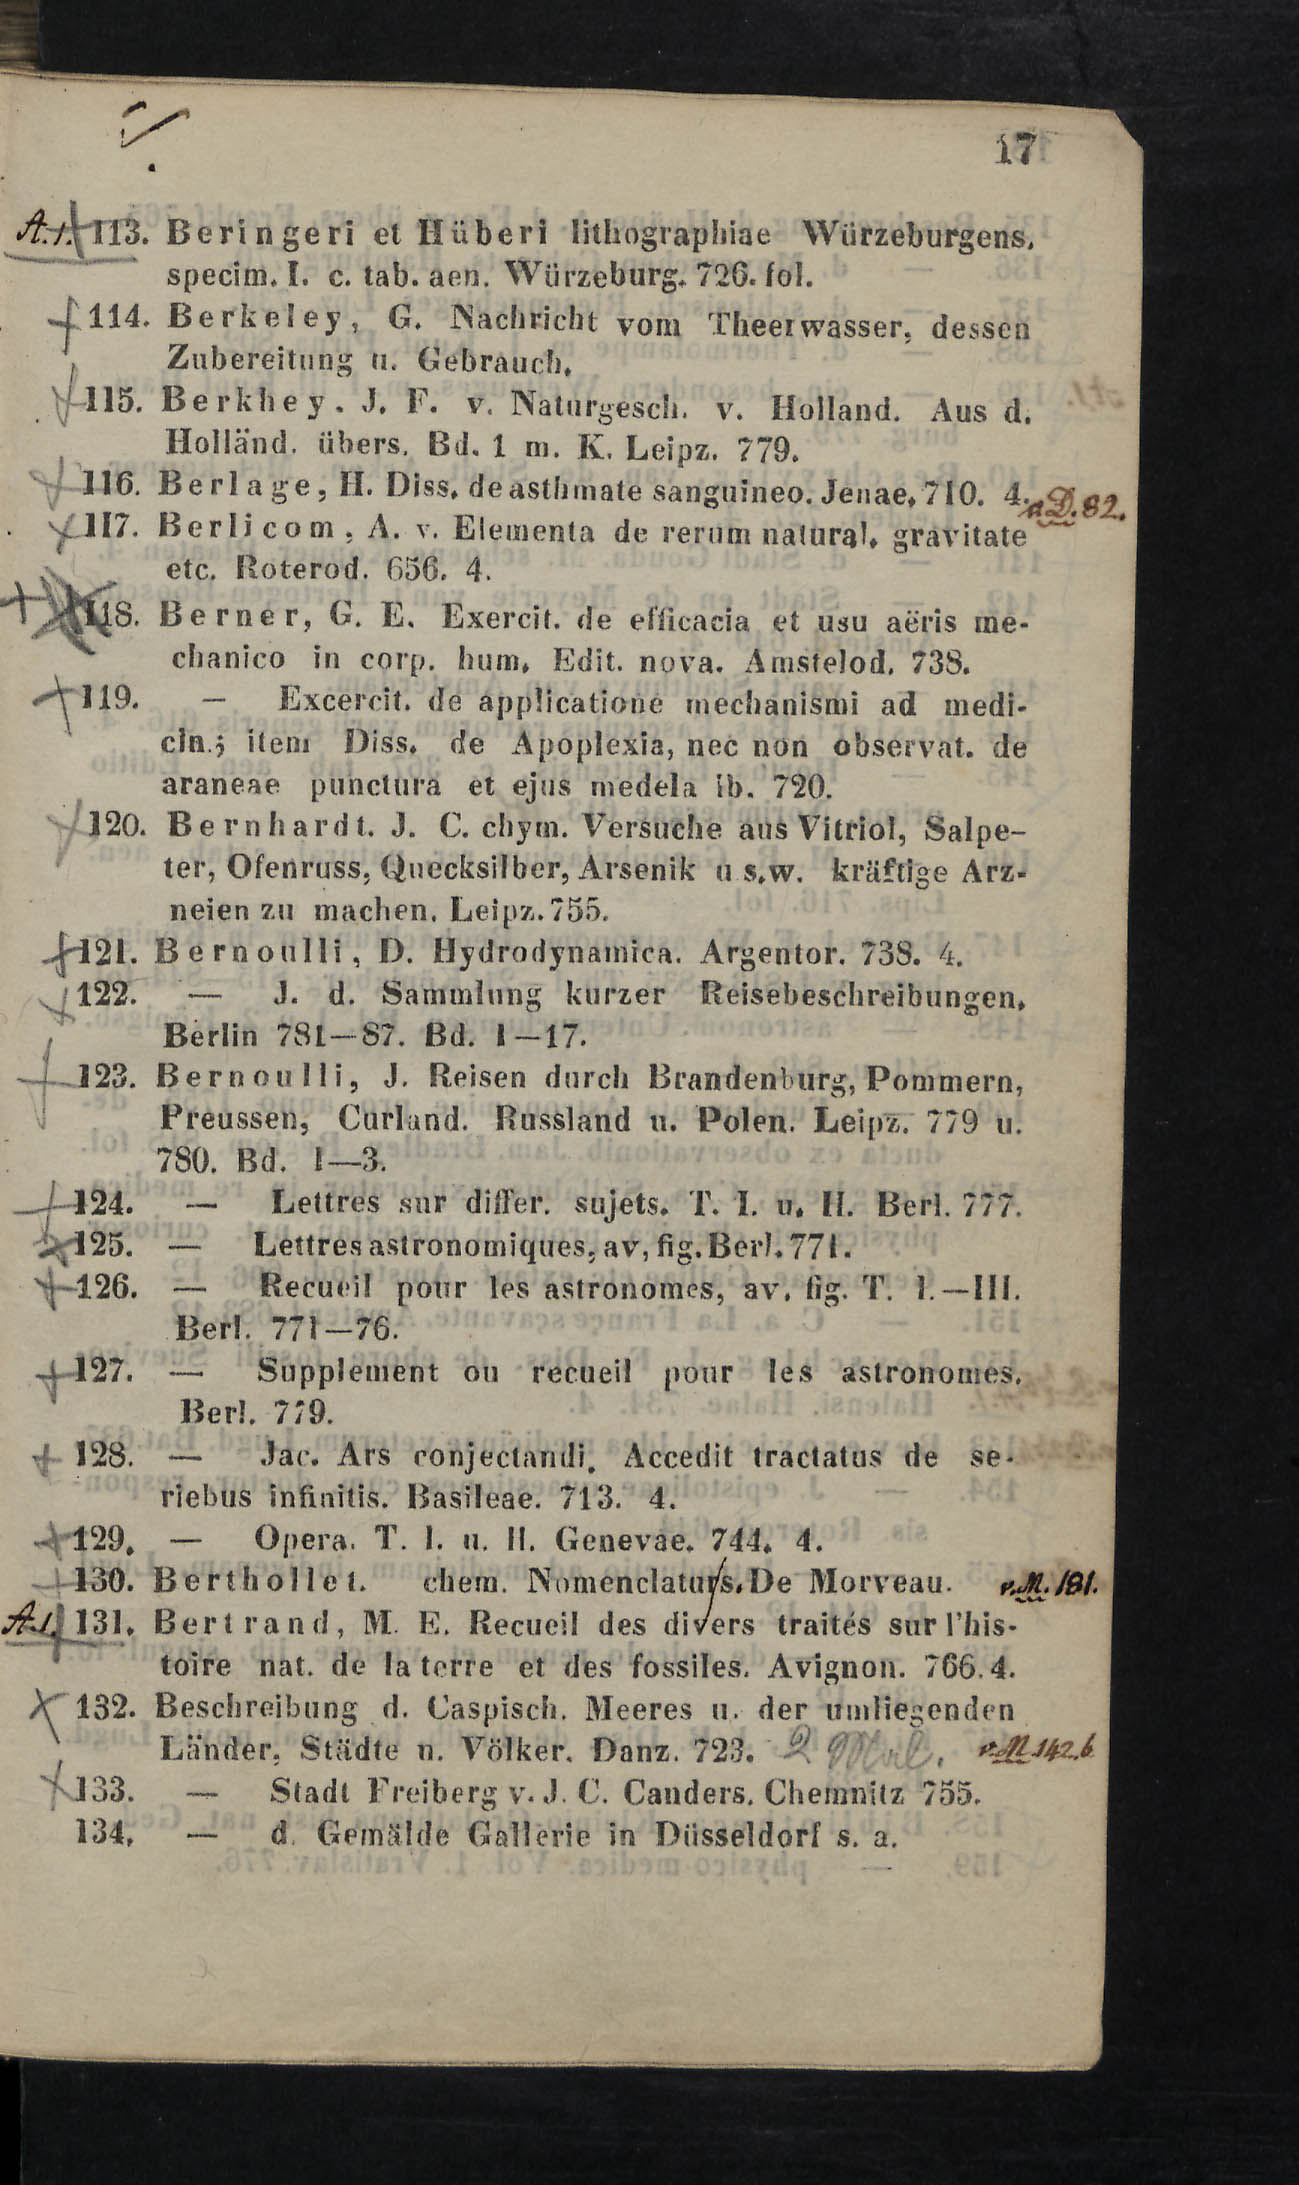 17
A.1. 113. Beringeri et Hüberi lithographiae Würzeburgens.
specim. I. c. tab. aen. Würzeburg. 726. fol.
114. Berkeley, G. Nachricht vom Theerwasser, dessen
Zubereitung u. Gebrauch.
115. Berkhey. J. F. v. Naturgesch. v. Holland. Aus d.
Holländ. übers. Bd. 1 m. K. Leipz. 779.
116. Berlage, H. Diss. de asthmate sanguineo. Jenae. 710. 4. D. 82.
117. Berlicom, A. v. Elementa de rerum natural. gravitate
etc. Roterod. 656. 4.
118. Berner, G. E. Exercit. de efficacia et usu aëris me-
chanico in corp. hum. Edit. nova. Amstelod. 738.
119. — Excercit. de applicatione mechanismi ad medi-
cin.; item Diss. de Apoplexia, nec non observat. de
araneae punctura et ejus medela ib. 720.
120. Bernhardt. J. C. chym. Versuche aus Vitriol, Salpe-
ter, Ofenruss, Quecksilber, Arsenik u s.w. kräftige Arz-
neien zu machen. Leipz. 755.
121. Bernoulli, D. Hydrodynamica. Argentor. 738. 4.
122. — J. d. Sammlung kurzer Reisebeschreibungen.
Berlin 781—87. Bd. 1—17.
123. Bernoulli, J. Reisen durch Brandenburg, Pommern,
Preussen, Curland. Russland u. Polen. Leipz. 779 u.
780. Bd. 1—3.
124. — Lettres sur differ. sujets. T. I. u. II. Berl. 777.
125. — Lettres astronomiques, av, fig. Berl. 771.
126. — Recueil pour les astronomes, av. fig. T. I.—III.
Berl. 771—76.
127. — Supplement ou recueil pour les astronomes.
Berl. 779.
128. — Jac. Ars conjectandi. Accedit tractatus de se-
riebus infinitis. Basileae. 713. 4.
129. — Opera. T. I. u. II. Genevae. 744. 4.
130. Berthollet. chem. Nomenclatur s. De Morveau. v. M. 181.
A.1. 131. Bertrand, M. E. Recueil des divers traités sur l'his-
toire nat. de la terre et des fossiles. Avignon. 766. 4.
132. Beschreibung d. Caspisch. Meeres u. der umliegenden
Länder, Städte u. Völker. Danz. 723. 2 Mal. v. M 142. b
133. — Stadt Freiberg v. J. C. Canders. Chemnitz 755.
134. — d. Gemälde Gallerie in Düsseldorf s. a.